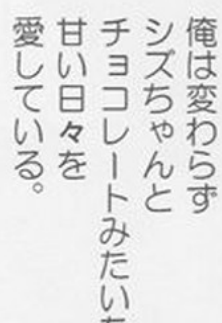 俺は変わらず
シズちゃんと
チョコレートみたいな
甘い日々を
愛している。